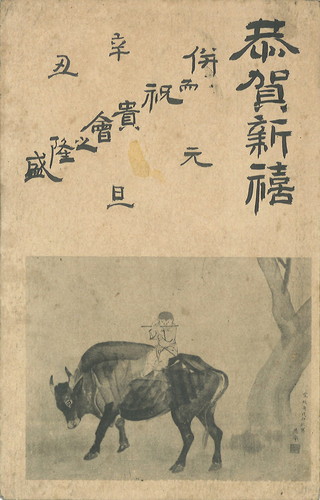 恭賀新禧
併而祝貴會之隆盛
辛丑
元旦